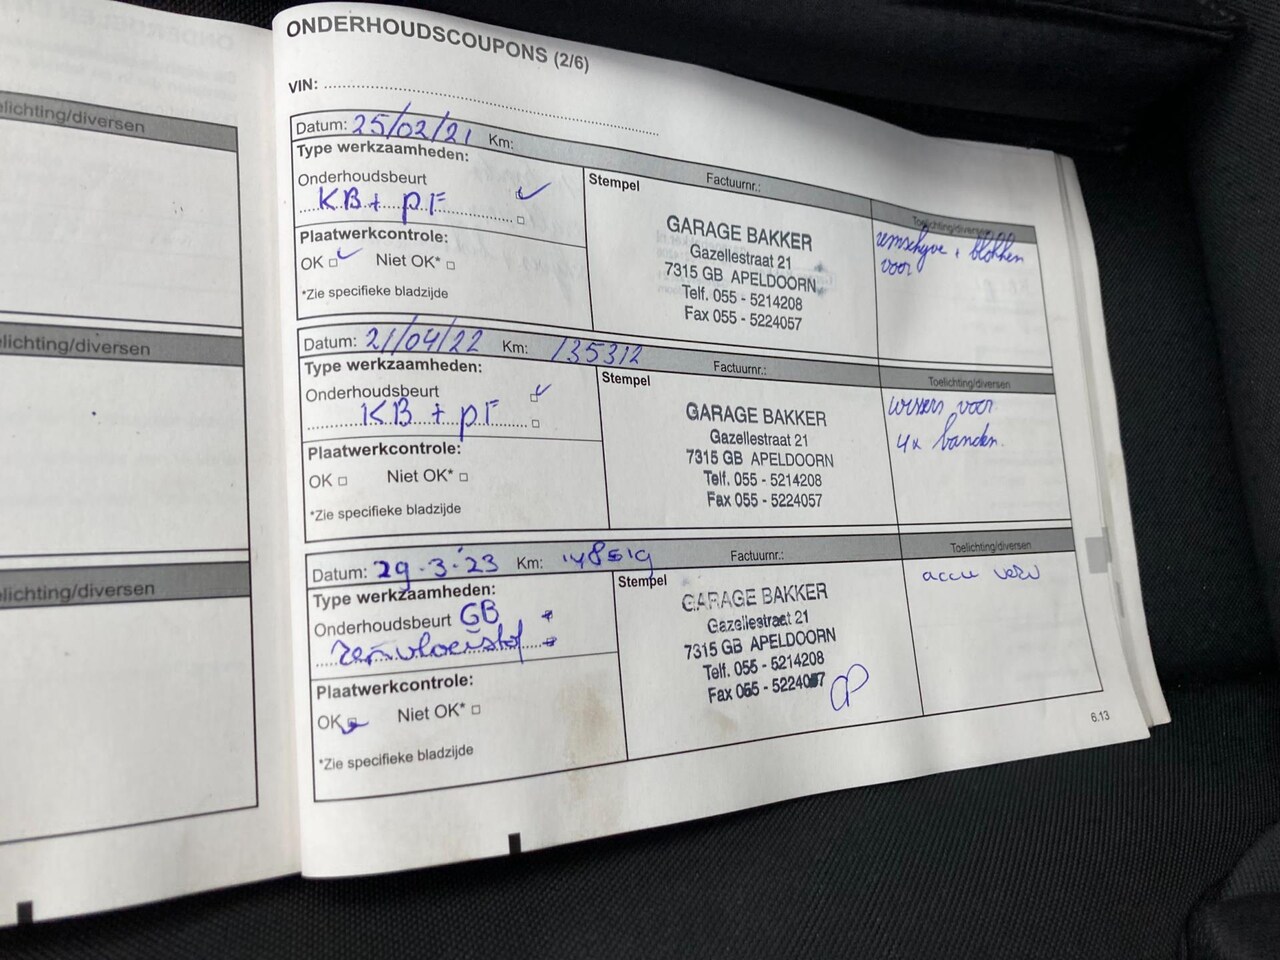 ONDERHOUDSCOUPONS (2/6)
VIN:
lichting/diversen
Datum: 25/02/21 Km:
Factuurnr.:
Type werkzaamheden:
Onderhoudsbeurt
KB + pF
Plaatwerkcontrole:
OK Niet OK*
*Zie specifieke bladzijde
Stempel
GARAGE BAKKER
Gazellestraat 21
7315 GB APELDOORN
Telf. 055 - 5214208
Fax 055 - 5224057
Toelichting/diversen
remschyve + blokken
voor
lichting/diversen
Datum: 21/04/22 Km: 135312
Factuurnr.:
Type werkzaamheden:
Onderhoudsbeurt
KB + pF
Plaatwerkcontrole:
OK Niet OK*
*Zie specifieke bladzijde
Stempel
GARAGE BAKKER
Gazellestraat 21
7315 GB APELDOORN
Telf. 055 - 5214208
Fax 055 - 5224057
Toelichting/diversen
wissers voor
4x banden.
lichting/diversen
Datum: 29-3-'23 Km: 148519
Factuurnr.:
Type werkzaamheden:
Onderhoudsbeurt GB
Remvloeistof
Plaatwerkcontrole:
OK Niet OK*
*Zie specifieke bladzijde
Stempel
GARAGE BAKKER
Gazellestraat 21
7315 GB APELDOORN
Telf. 055 - 5214208
Fax 055 - 5224057
Toelichting/diversen
accu verv
6.13